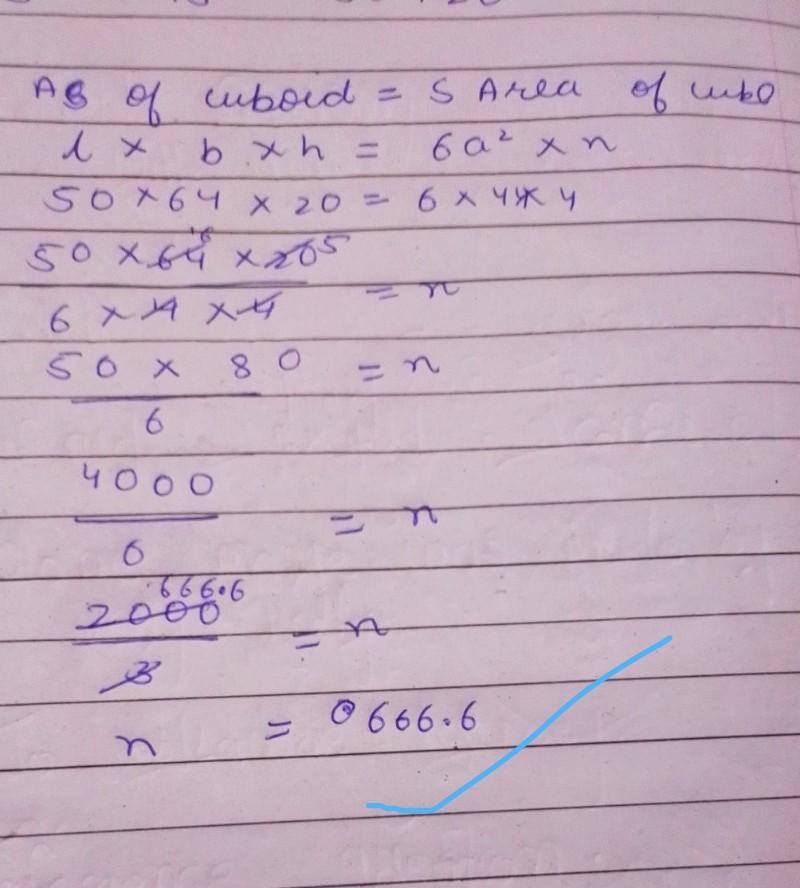 AS of cuboid = S Area of cubo
l × b × h = 6a² × n
50 × 64 × 20 = 6 × 4 × 4
50 × 64 16 × 20 5
6 × 4 × 4 = n
50 × 80 = n
6
4000
6 = n
666.6
2000
3 = n
n = 666.6